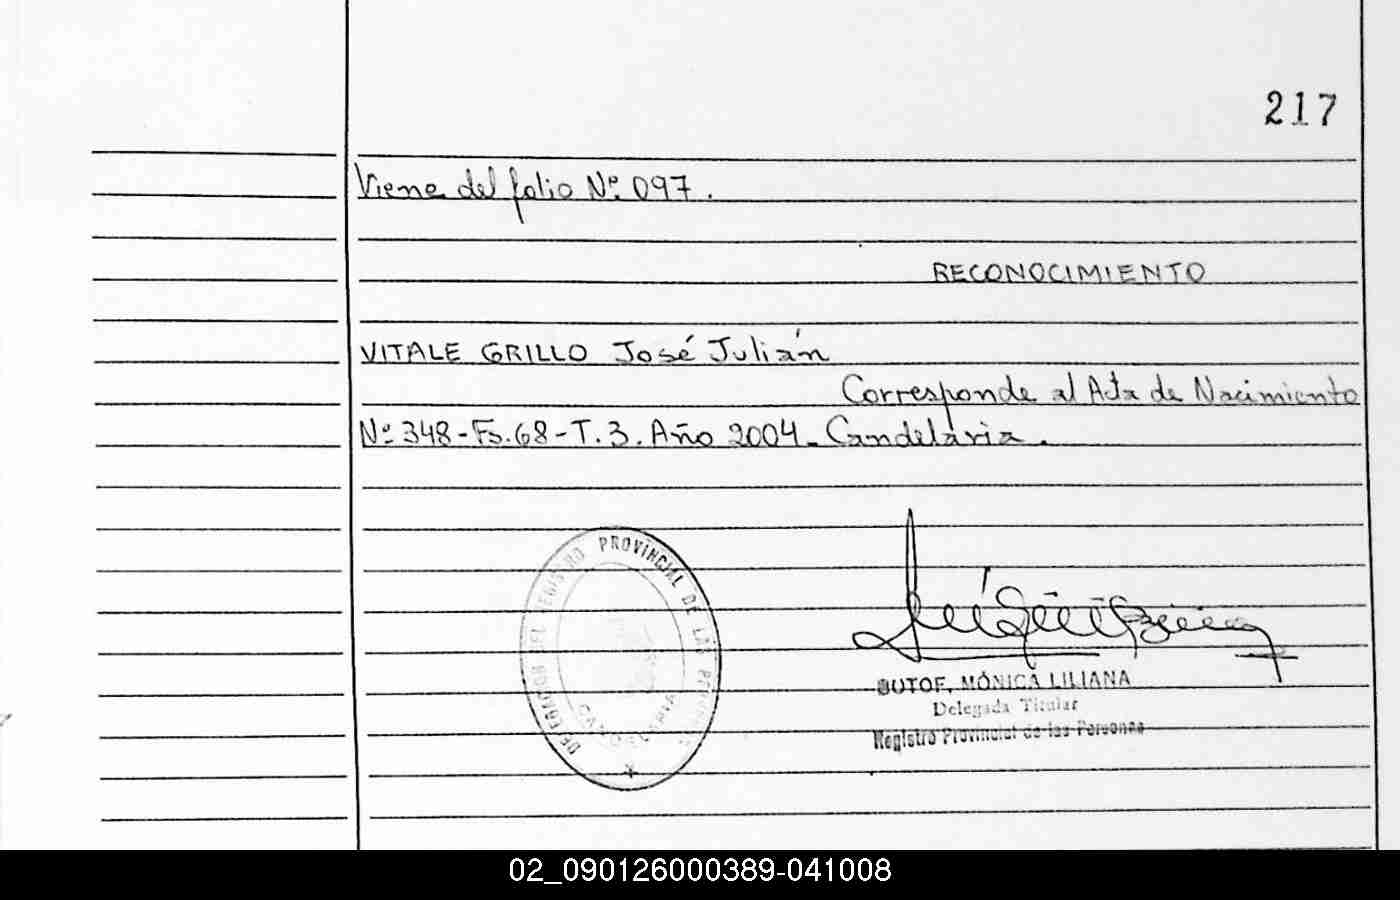 217
Viene del folio Nº. 097.
RECONOCIMIENTO
VITALE GRILLO José Julián
Corresponde al Acta de Nacimiento
Nº 348-Fs.68-T.3. Año 2004. Candelaria.
DELEGACION DEL REGISTRO PROVINCIAL DE LAS PERSONAS
CANDELARIA
MÓNICA LILIANA
Delegada Titular
Registro Provincial de las Personas
02_090126000389-041008